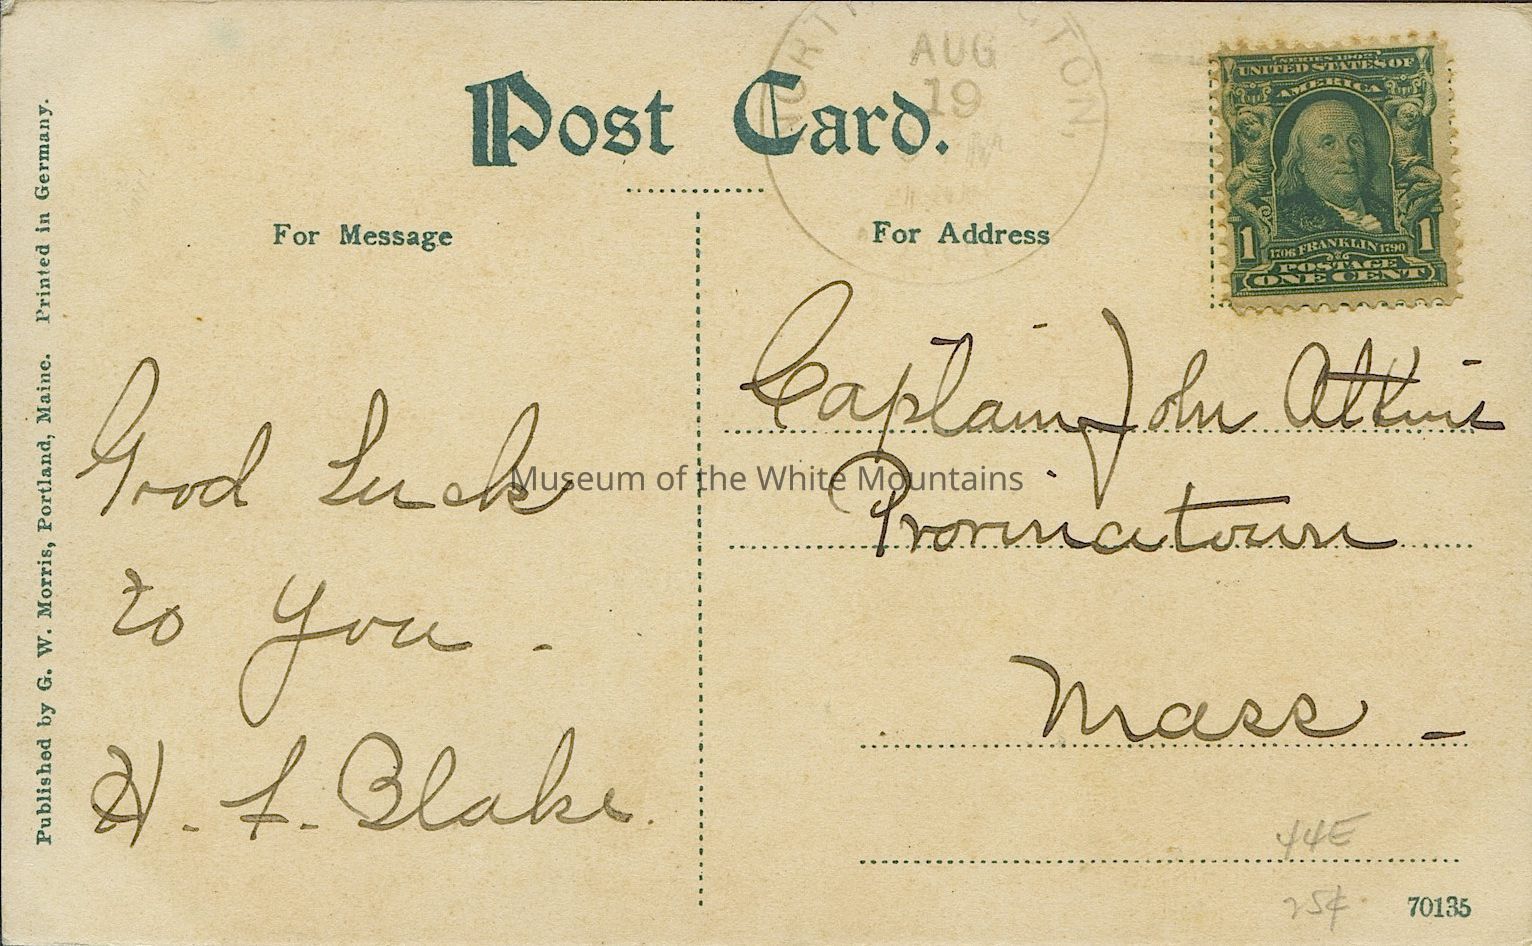 AUG
19
Post Card.
For Message
For Address
SERIES 1902
UNITED STATES OF
AMERICA
1 1706 FRANKLIN 1790 1
POSTAGE
ONE CENT
Good Luck
to you -
H. F. Blake.
Captain John Atkins
Provincetown
Mass -
44E
25¢
70135
Published by G. W. Morris, Portland, Maine. Printed in Germany.
Museum of the White Mountains